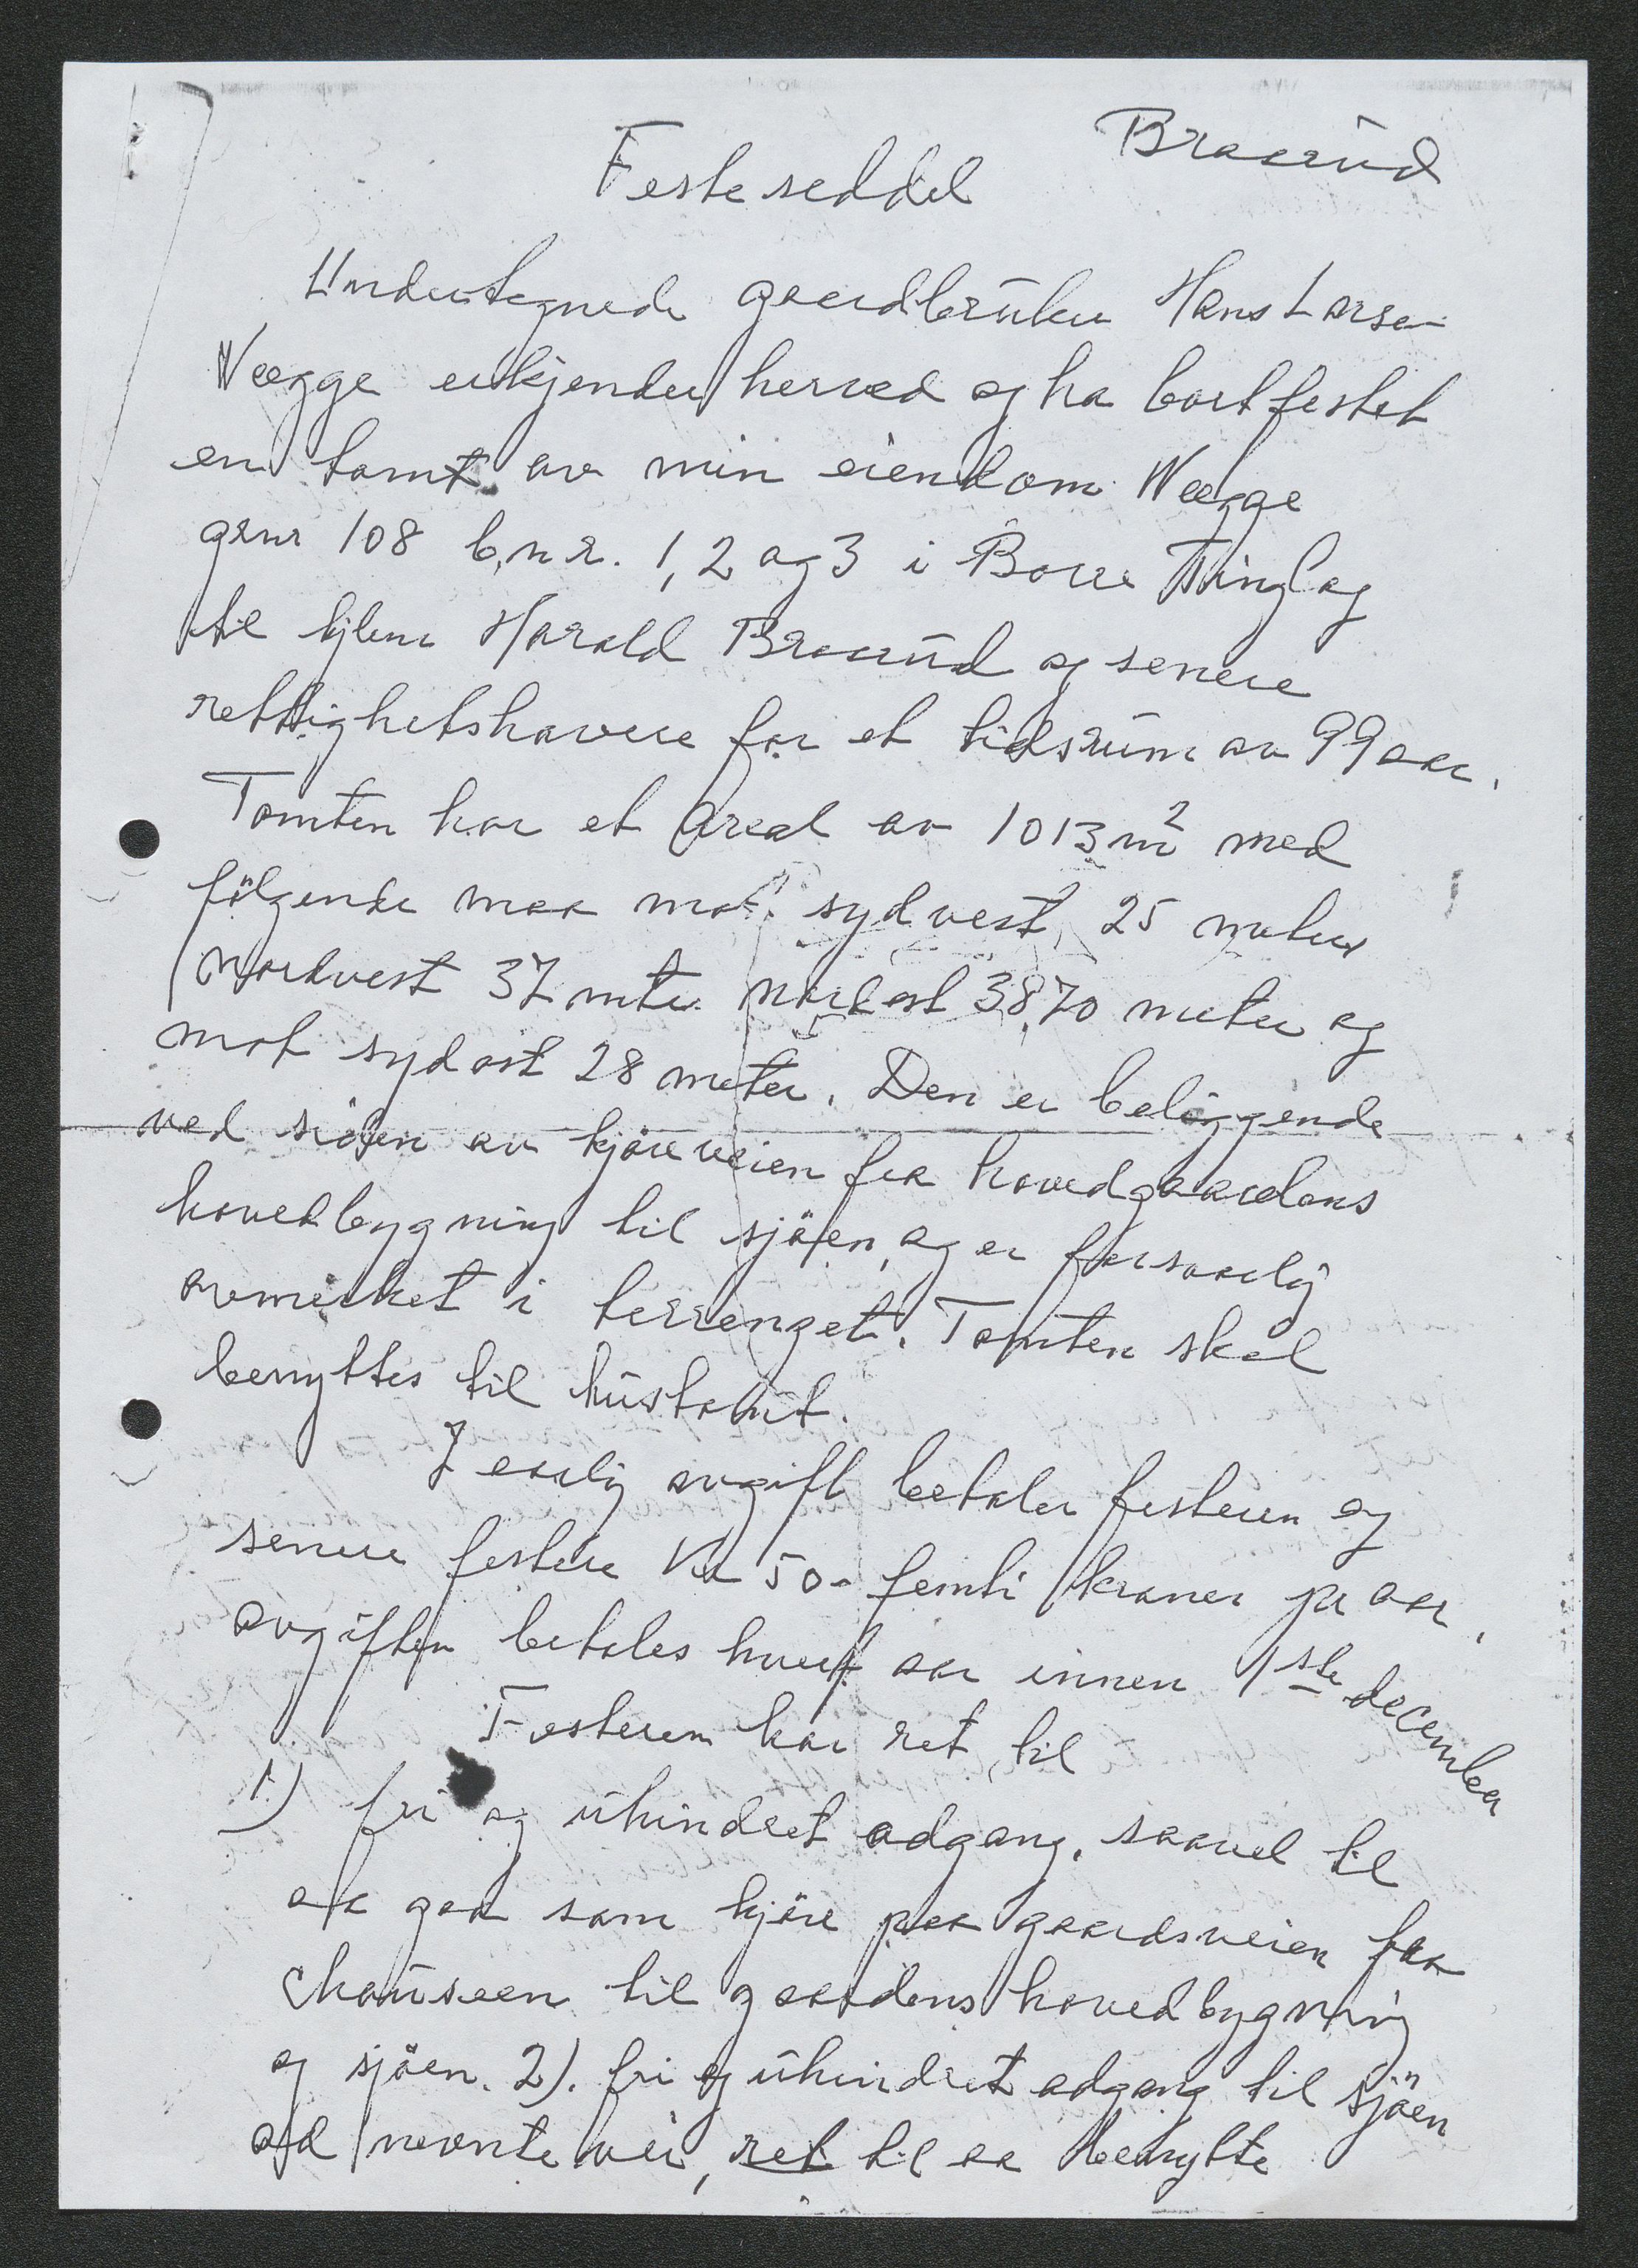 Braarud
Festeseddel
Undertegnede gaardbruker Hans Larsen
Vægge erkjender herved og ha bortfestet
en tomt av min eiendom Vægge
grnr 108 b,nr. 1, 2 og 3 i Borre Tinglag
til hr. Harald Braarud og senere
rettighetshavere for et tidsrum av 99 aar.
Tomten har et Areal av 1013 m² med
følgende maa mot sydvest, 25 meter
Nordvest 37 mtr. Nordost 38,70 meter og
mot sydost 28 meter. Den er beliggende
ved siden av kjøreveien fra hovedgaardens
hovedbygning til sjøen, og er forsvarlig
avmerket i terrenget. Tomten skal
benyttes til hustomt.
I aarlig avgift betaler festeren og
senere festere Kr 50- femti kroner pr aar,
avgiften betales hvert aar innen 1ste december
Festeren har ret til
1) fri og uhindret adgang, saavel til
aa gaa som kjøre paa gaardsveien fra
Chauseen til gaardens hovedbygning
og sjøen. 2). fri og uhindret adgang til sjøen
ad nevnte vei, ret til aa benytte